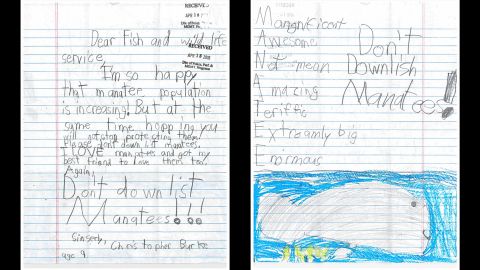 RECEIVED
RECEIVED
Dear Fish and wild life
service,
I'm so happy
that manatee population
is increasing! But at the
same time hopping you
will not stop protecting them.
Please don't down list manatees.
I LOVE manatees and got my
best friend to love them too.
Again,
Don't down list
Manatees!!!
Sinserly,
Christopher Burke
age 9
Mangnificent
Awesome
Not-mean
Amazing
Teriffic
Extreamly big
Enormous
Don't
Downlish
Manatees!!